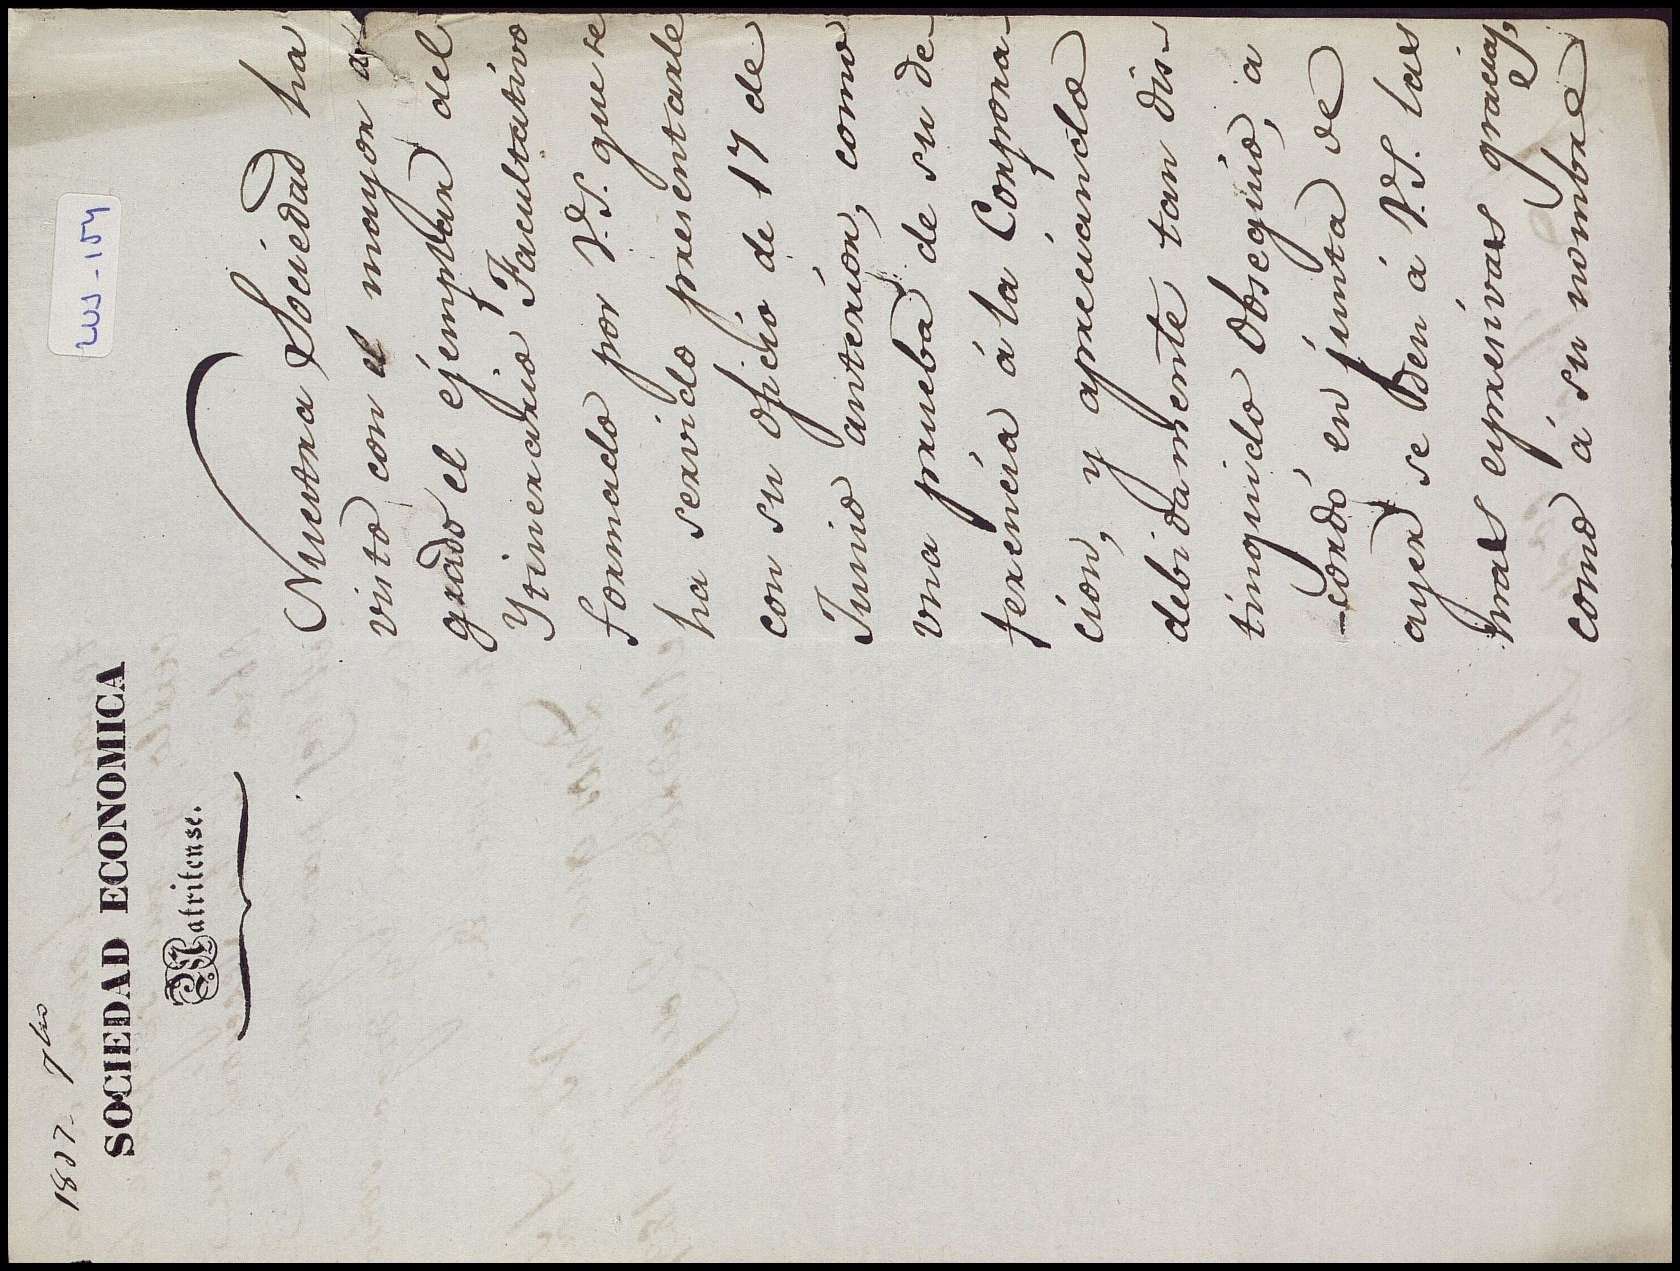 1837- 7bre
SOCIEDAD ECONOMICA
Matritense.
LUS-154
Nuestra Sociedad ha
visto con el mayor a
grado el ejemplar del
Ytinerario Facultativo
formado por V.S. que se
ha servido presentarle
con su oficio de 17 de
Junio anterior, como
una prueba de su de-
ferencia á la Corpora-
cion, y apreciando
debidamente tan dis-
tinguido obsequio, a
-cordó en junta de
ayer se den á V.S. las
mas espresivas gracias,
como á su nombre